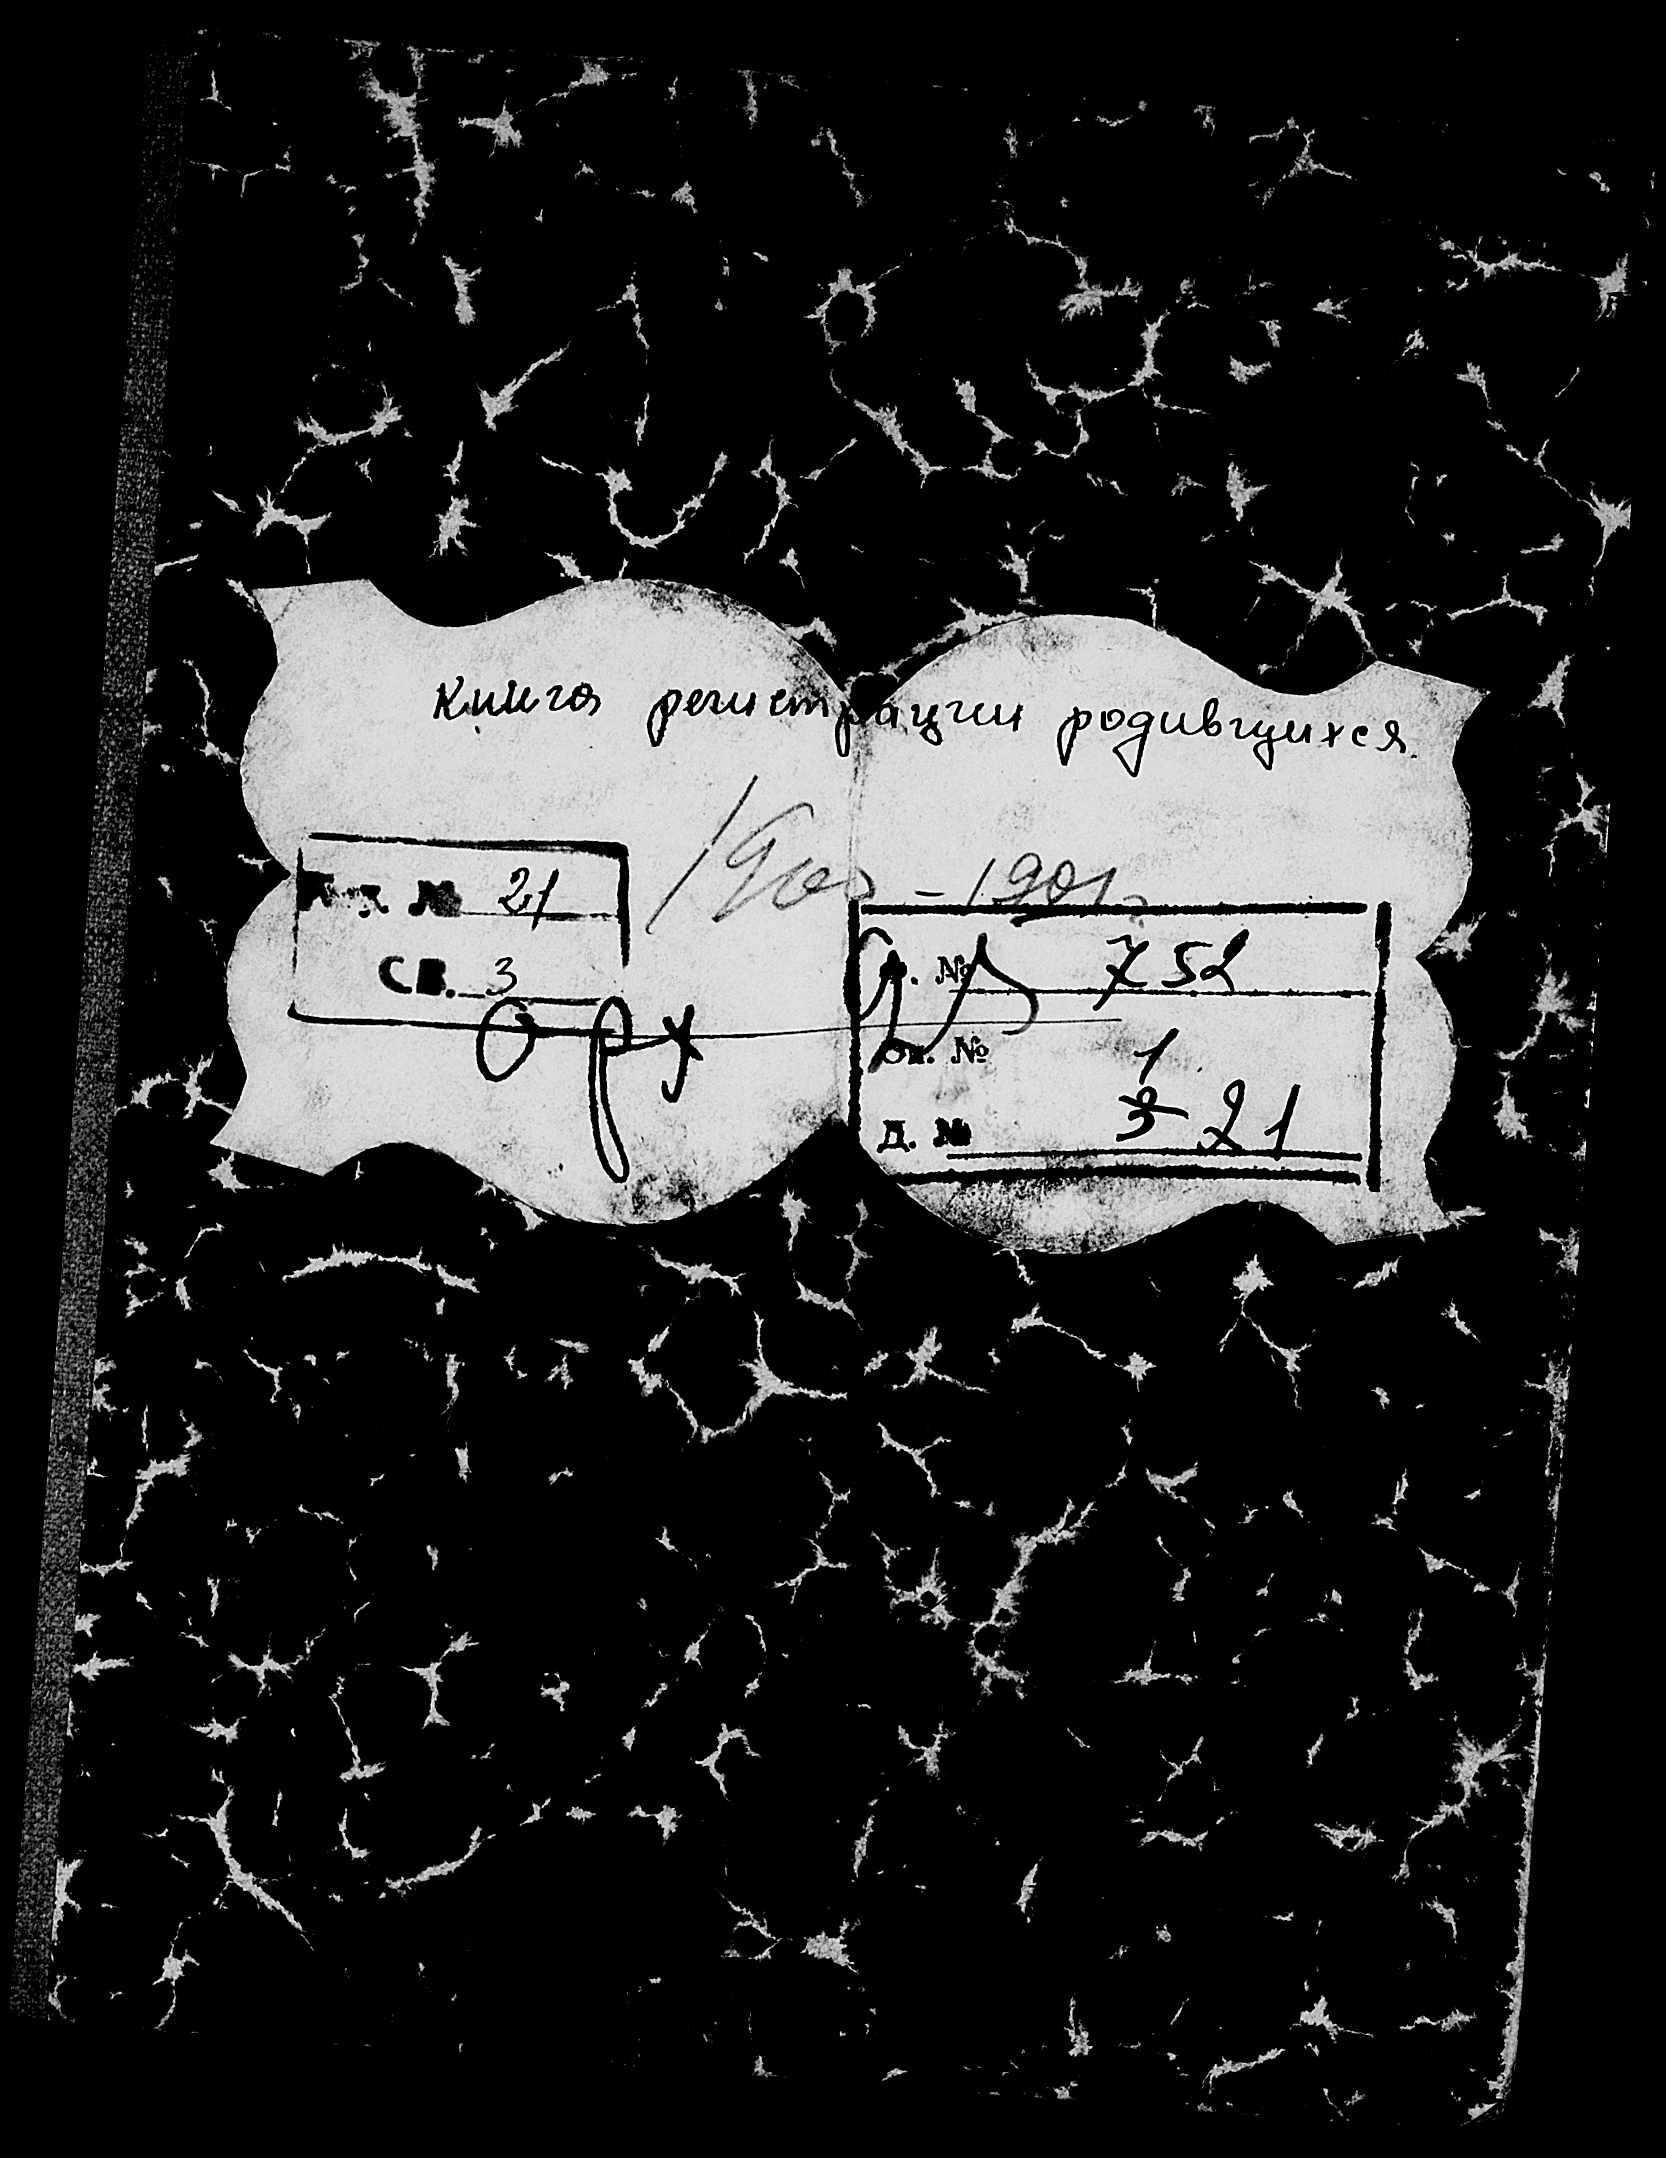 Книга регистрации родившихся.
1900 - 1901 г.
№ 21
СВ. 3
Ф. № 752
Оп. № 1
Д. № 3 21